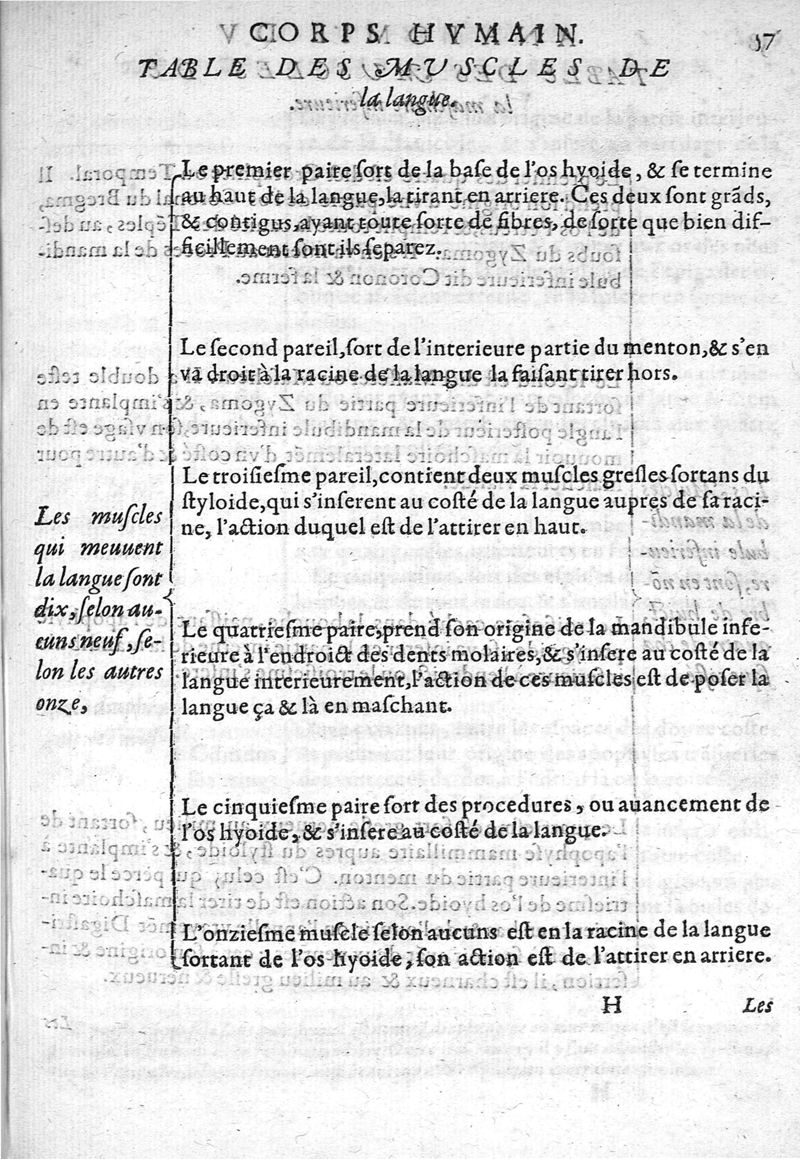 CORPS HVMAIN.
57
TABLE DES MVSCLES DE
la langue.
Le premier paire ſort de la baſe de l'os hyoide, & ſe termine
au haut de la langue, la tirant en arriere. Ces deux ſont grãds,
& contigus, ayant toute ſorte de fibres, de ſorte que bien dif-
ficillement ſont ils ſeparez.
Le ſecond pareil, ſort de l'interieure partie du menton, & s'en
va droit à la racine de la langue la faiſant tirer hors.
Le troiſieſme pareil, contient deux muſcles greſles ſortans du
ſtyloide, qui s'inſerent au coſté de la langue aupres de ſa raci-
ne, l'action duquel eſt de l'attirer en haut.
Les muſcles
qui meuuent
la langue ſont
dix, ſelon au-
cuns neuf, ſe-
lon les autres
onze,
Le quatrieſme paire, prend ſon origine de la mandibule infe-
rieure à l'endroict des dents molaires, & s'inſere au coſté de la
langue interieurement, l'action de ces muſcles eſt de poſer la
langue ça & là en maſchant.
Le cinquieſme paire ſort des procedures, ou auancement de
l'os hyoide, & s'inſere au coſté de la langue.
L'onzieſme muſcle ſelon aucuns eſt en la racine de la langue
ſortant de l'os hyoide, ſon action eſt de l'attirer en arriere.
H
Les